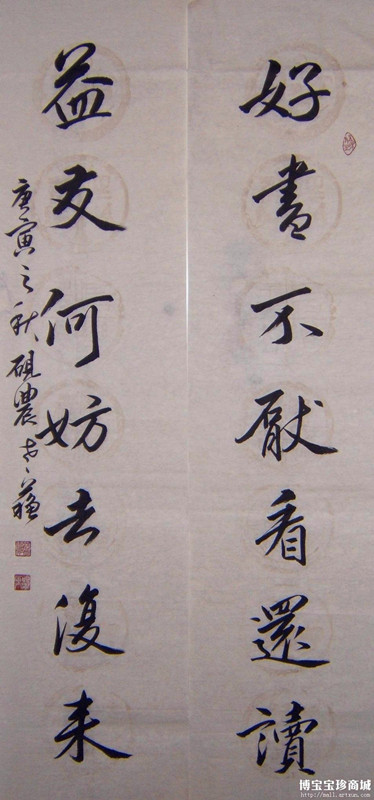 好書不厭看還讀
益友何妨去復来
庚寅之秋硯農
博宝宝珍商城
http://mall.artxun.com